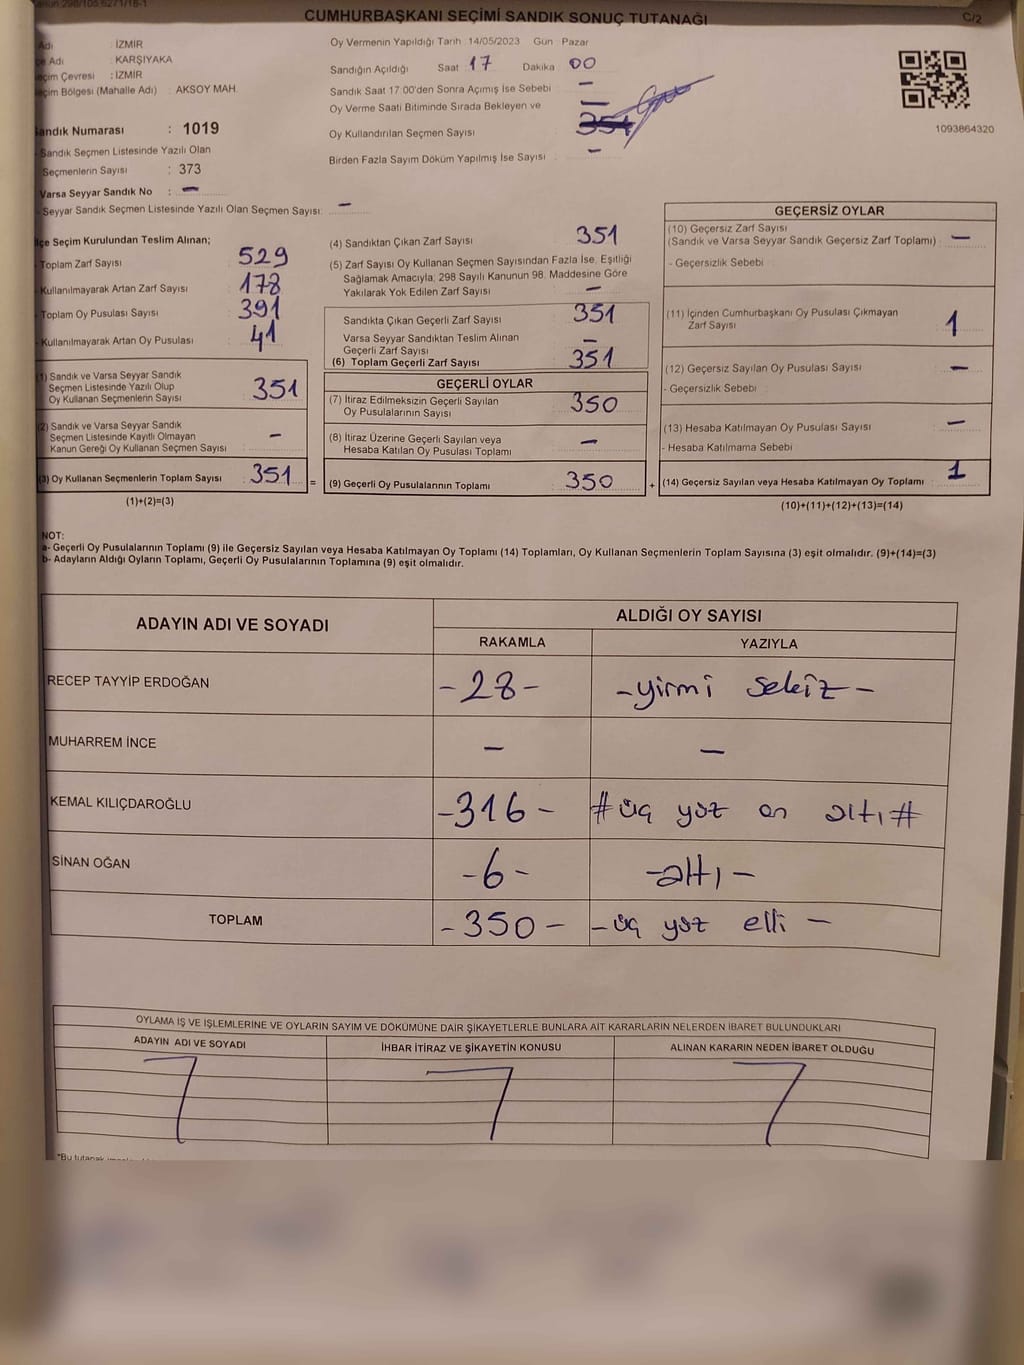 CUMHURBAŞKANI SEÇİMİ SANDIK SONUÇ TUTANAĞI
C/2
Adı : İZMİR
Adı : KARŞIYAKA
Seçim Çevresi : İZMİR
Seçim Bölgesi (Mahalle Adı) : AKSOY MAH.
Sandık Numarası : 1019
- Sandık Seçmen Listesinde Yazılı Olan
Seçmenlerin Sayısı : 373
Varsa Seyyar Sandık No : -
- Seyyar Sandık Seçmen Listesinde Yazılı Olan Seçmen Sayısı: -
Oy Vermenin Yapıldığı Tarih : 14/05/2023 Gün Pazar
Sandığın Açıldığı Saat 17 Dakika 00
Sandık Saat 17:00'den Sonra Açımış İse Sebebi -
Oy Verme Saati Bitiminde Sırada Bekleyen ve
Oy Kullandırılan Seçmen Sayısı - 351
Birden Fazla Sayım Döküm Yapılmış İse Sayısı : -
1093864320
İlçe Seçim Kurulundan Teslim Alınan;
- Toplam Zarf Sayısı 529
- Kullanılmayarak Artan Zarf Sayısı 178
- Toplam Oy Pusulası Sayısı 391
- Kullanılmayarak Artan Oy Pusulası 41
(1) Sandık ve Varsa Seyyar Sandık
Seçmen Listesinde Yazılı Olup
Oy Kullanan Seçmenlerin Sayısı 351
(2) Sandık ve Varsa Seyyar Sandık
Seçmen Listesinde Kayıtlı Olmayan
Kanun Gereği Oy Kullanan Seçmen Sayısı -
(3) Oy Kullanan Seçmenlerin Toplam Sayısı 351
(1)+(2)=(3)
(4) Sandıktan Çıkan Zarf Sayısı 351
(5) Zarf Sayısı Oy Kullanan Seçmen Sayısından Fazla İse, Eşitliği
Sağlamak Amacıyla; 298 Sayılı Kanunun 98. Maddesine Göre
Yakılarak Yok Edilen Zarf Sayısı -
Sandıkta Çıkan Geçerli Zarf Sayısı 351
Varsa Seyyar Sandıktan Teslim Alınan
Geçerli Zarf Sayısı -
(6) Toplam Geçerli Zarf Sayısı 351
=
GEÇERLİ OYLAR
(7) İtiraz Edilmeksizin Geçerli Sayılan
Oy Pusulalarının Sayısı 350
(8) İtiraz Üzerine Geçerli Sayılan veya
Hesaba Katılan Oy Pusulası Toplamı -
(9) Geçerli Oy Pusulalarının Toplamı 350
+
GEÇERSİZ OYLAR
(10) Geçersiz Zarf Sayısı
(Sandık ve Varsa Seyyar Sandık Geçersiz Zarf Toplamı) : -
- Geçersizlik Sebebi
(11) İçinden Cumhurbaşkanı Oy Pusulası Çıkmayan
Zarf Sayısı 1
(12) Geçersiz Sayılan Oy Pusulası Sayısı -
- Geçersizlik Sebebi
(13) Hesaba Katılmayan Oy Pusulası Sayısı -
- Hesaba Katılmama Sebebi
(14) Geçersiz Sayılan veya Hesaba Katılmayan Oy Toplamı : 1
(10)+(11)+(12)+(13)=(14)
NOT:
a- Geçerli Oy Pusulalarının Toplamı (9) ile Geçersiz Sayılan veya Hesaba Katılmayan Oy Toplamı (14) Toplamları, Oy Kullanan Seçmenlerin Toplam Sayısına (3) eşit olmalıdır. (9)+(14)=(3)
b- Adayların Aldığı Oyların Toplamı, Geçerli Oy Pusulalarının Toplamına (9) eşit olmalıdır.
ADAYIN ADI VE SOYADI
ALDIĞI OY SAYISI
RAKAMLA YAZIYLA
RECEP TAYYİP ERDOĞAN -28- -yirmi sekiz-
MUHARREM İNCE - -
KEMAL KILIÇDAROĞLU -316- #üç yüz on altı#
SİNAN OĞAN -6- -altı-
TOPLAM -350- -üç yüz elli-
OYLAMA İŞ VE İŞLEMLERİNE VE OYLARIN SAYIM VE DÖKÜMÜNE DAİR ŞİKAYETLERLE BUNLARA AİT KARARLARIN NELERDEN İBARET BULUNDUKLARI
ADAYIN ADI VE SOYADI İHBAR İTİRAZ VE ŞİKAYETİN KONUSU ALINAN KARARIN NEDEN İBARET OLDUĞU